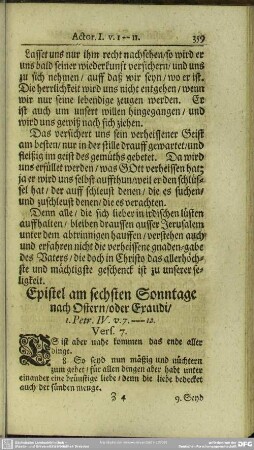 Actor. I. v. 1--11. 359
Lasset uns nur ihm recht nachsehen/ so wird er
uns bald seiner wiederkunfft versichern/ und uns
zu sich nehmen/ auff daß wir seyn/ wo er ist.
Die herrlichkeit wird uns nicht entgehen/ wenn
wir nur seine lebendige zeugen werden. Er
ist auch um unsert willen hingegangen/ und
wird uns gewiß nach sich ziehen.
Das versichert uns sein verheissener Geist
am besten/ nur in der stille drauff gewartet/ und
fleißig im geist des gemüths gebetet. Da wird
uns erfüllet werden/ was GOtt verheissen hat;
er wird uns selbst auffthun/ weil er den schlüs-
sel hat/ der auff schleust denen/ die es suchen/
und zuschleust denen/ die es verachten.
Denn alle/ die sich lieber in irdischen lüsten
auffhalten/ bleiben draussen ausser Jerusalem
unter dem abtrünnigen hauffen/ verstehen auch
und erfahren nicht die verheissene gnaden-gabe
des Vaters/ die doch in Christo das allerhöch-
ste und mächtigste geschenck ist zu unserer se-
ligkeit.
Epistel am sechsten Sonntage
nach Ostern/ oder Exaudi/
1. Petr. IV. v. 7.---12.
Vers. 7.
ES ist aber nahe kommen das ende aller
dinge.
8. So seyd nun mäßig und nüchtern
zum gebet; für allen dingen aber habt unter
einander eine brünstige liebe; denn die liebe bedecket
auch der sünden menge.
Z 4 9. Seyd